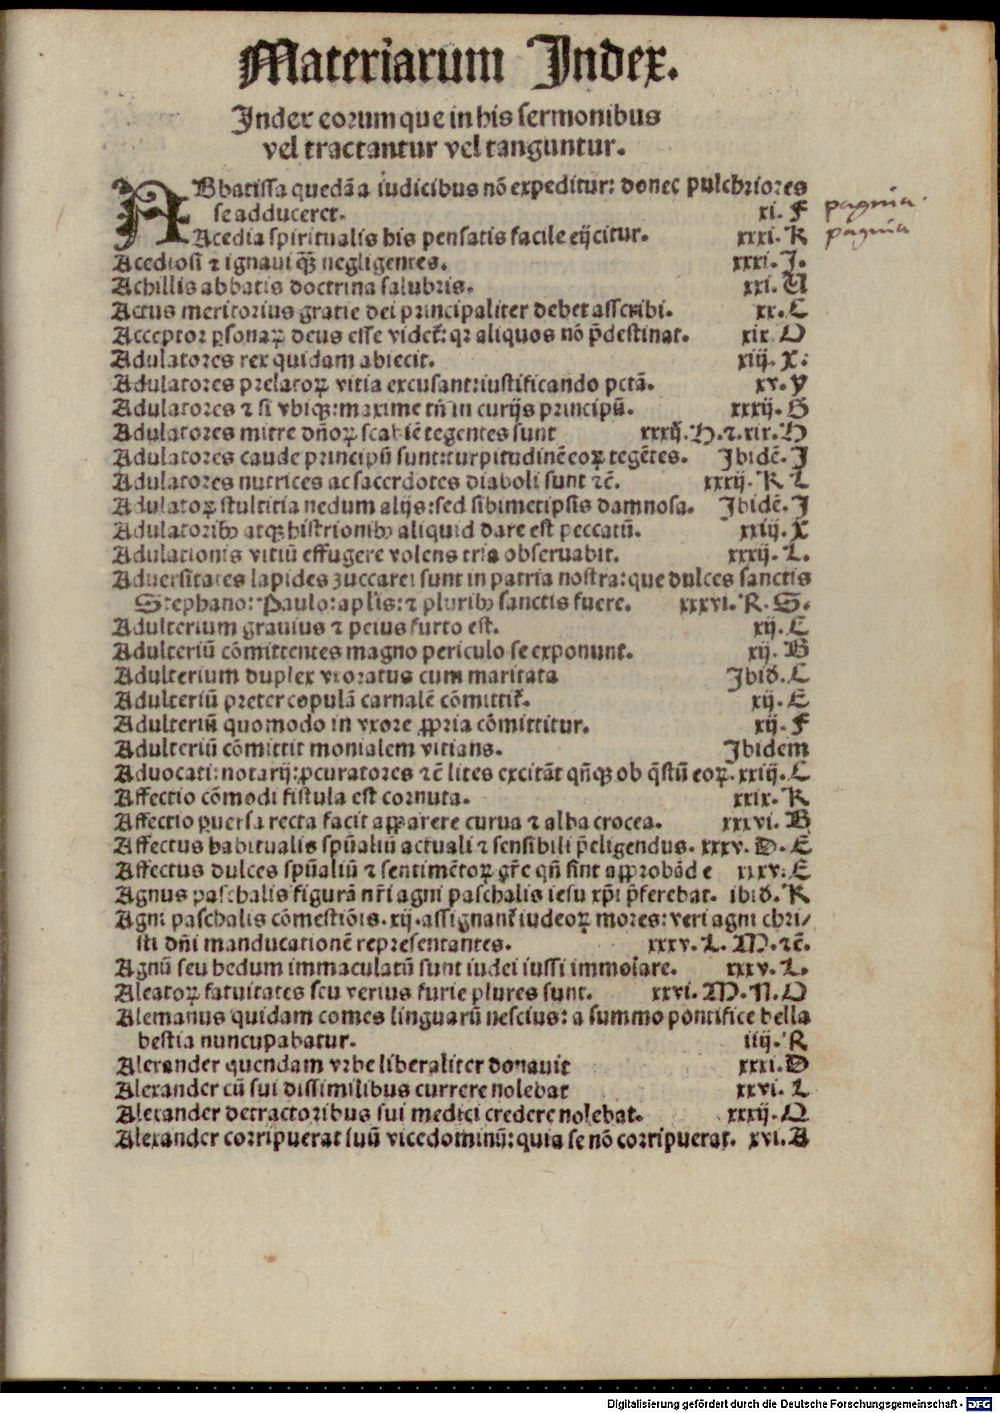 Materiarum Index.
Index eorum que in his sermonibus
vel tractantur vel tanguntur.
ABbatissa quedā a iudicibus nō expeditur: donec pulchriores
se adduceret. xi. F pagina.
Acedia spiritualis his pensatis facile eijcitur. xxxi. K pagina
Acediosi ⁊ ignaui qȝ̄ negligentes. xxxi. J.
Achillis abbatis doctrina salubris. xxi. U
Actus meritorius gratie dei principaliter debet asscribi. xx. C
Acceptor ꝑsonaꝝ deus esse videt᷑: qꝛ aliquos nō p̄destinat. xix O
Adulatores rex quidam abiecit. xiij. X:
Adulatores prelatoꝝ vitia excusant: iustificando pctā. xv. Y
Adulatores ⁊ si vbiqȝ: maxime tn̄ in curijs principū. xxxij. G
Adulatores mitre dn̄oꝝ scabiē tegentes sunt xxxij. H. ⁊. xix. H
Adulatores caude principū sunt: turpitudinē eoꝝ tegētes. Ibidē. J
Adulatores nutrices ac sacerdotes diaboli sunt ⁊c̄. xxxij. K L
Adulatoꝝ stultitia nedum alijs: sed sibimetipsis damnosa. Ibidē. J
Adulatoribꝰ atqȝ histrionibꝰ aliquid dare est peccatū. xxiij. X
Adulationis vitiū effugere volens tria obseruabit. xxxij. L.
Aduersitates lapides zuccarei sunt in patria nostra: que dulces sanctis
Stephano: Paulo: aplis: ⁊ pluribꝰ sanctis fuere. xxxvi. R. S.
Adulterium grauius ⁊ peius furto est. xij. C
Adulteriū cōmittentes magno periculo se exponunt. xij. B
Adulterium duplex vxoratus cum maritata Ibid. C
Adulteriū preter copulā carnalē cōmittit᷑. xij. E
Adulteriū quomodo in vxore ꝓpria cōmittitur. xij. F
Adulteriū cōmittit monialem vitians. Ibidem
Aduocati: notarij: ꝓcuratores ⁊c̄ lites excitāt qn̄qȝ ob q̄stū eoꝝ. xxiij. C
Affectio cōmodi fistula est cornuta. xxix. K
Affectio ꝑuersa recta facit apparere curua ⁊ alba crocea. xxxvi. B
Affectus habitualis spūaliū actuali ⁊ sensibili p̄eligendus. xxxv. D. E
Affectus dulces spūaliū ⁊ sentimētoꝝ gr̄e qn̄ sint approbādе xxxv. E
Agnus paschalis figurā nr̄i agni paschalis iesu xp̄i p̄ferebat. ibid. K
Agni paschalis cōmestiōis. xij. assignant᷑ iudeoꝝ mores: veri agni chri/
sti dn̄i manducationē representantes. xxxv. L. M. ⁊c̄.
Agnū seu hedum immaculatū sunt iudei iussi immolare. xxxv. L.
Aleatoꝝ fatuitates seu verius furie plures sunt. xxvi. M. N. O
Alemanus quidam comes linguarū nescius: a summo pontifice bella
bestia nuncupabatur. iiij. R
Alexander quendam vrbe liberaliter donauit xxxi. D
Alexander cū sui dissimilibus currere nolebat xxvi. L
Alexander detractoribus sui medici credere nolebat. xxxij. Q
Alexander corripuerat suū vicedominū: quia se nō corripuerat. xvi. A
Digitalisierung gefördert durch die Deutsche Forschungsgemeinschaft - DFG